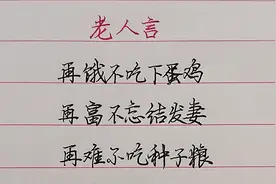 老人言
再饿不吃下蛋鸡
再富不忘结发妻
再难不吃种子粮